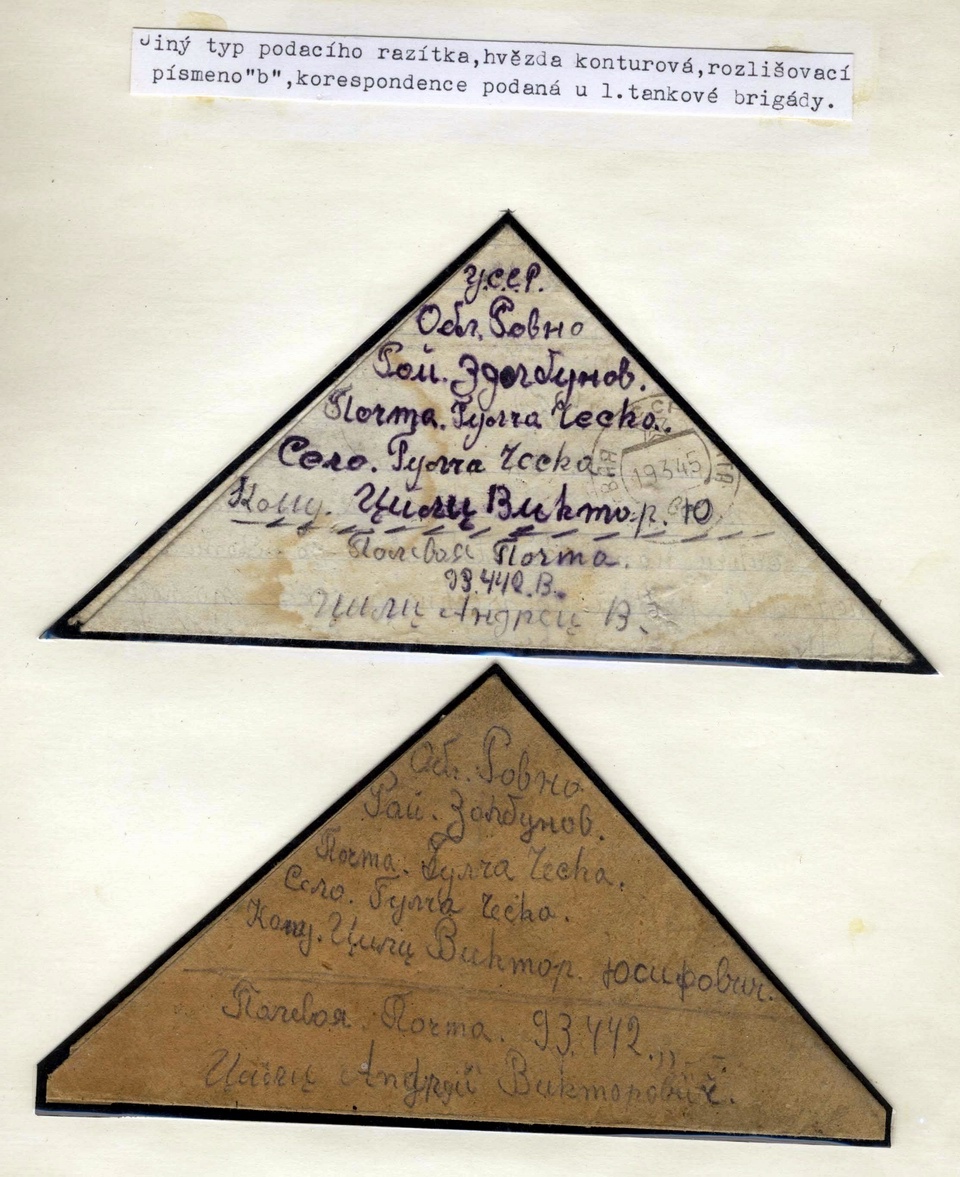 Jiný typ podacího razítka,hvězda konturová,rozlišovací
písmeno"b",korespondence podaná u 1.tankové brigády.
У.С.С.Р.
Обл. Ровно
Рай. Здолбунов.
Почта. Гулча Ческа.
Село. Гулча Ческа
Кому. Цилц Виктор. Ю
19345
Полевая Почта.
93.442.В.
Андрец В.
Обл. Ровно
Рай. Золбунов.
Почта. Гулча Ческа.
Село. Гулча Ческа.
Кому. Цилц Виктор. Юсифович.
Полевая. Почта. 93.442.
Андрей Викторович.